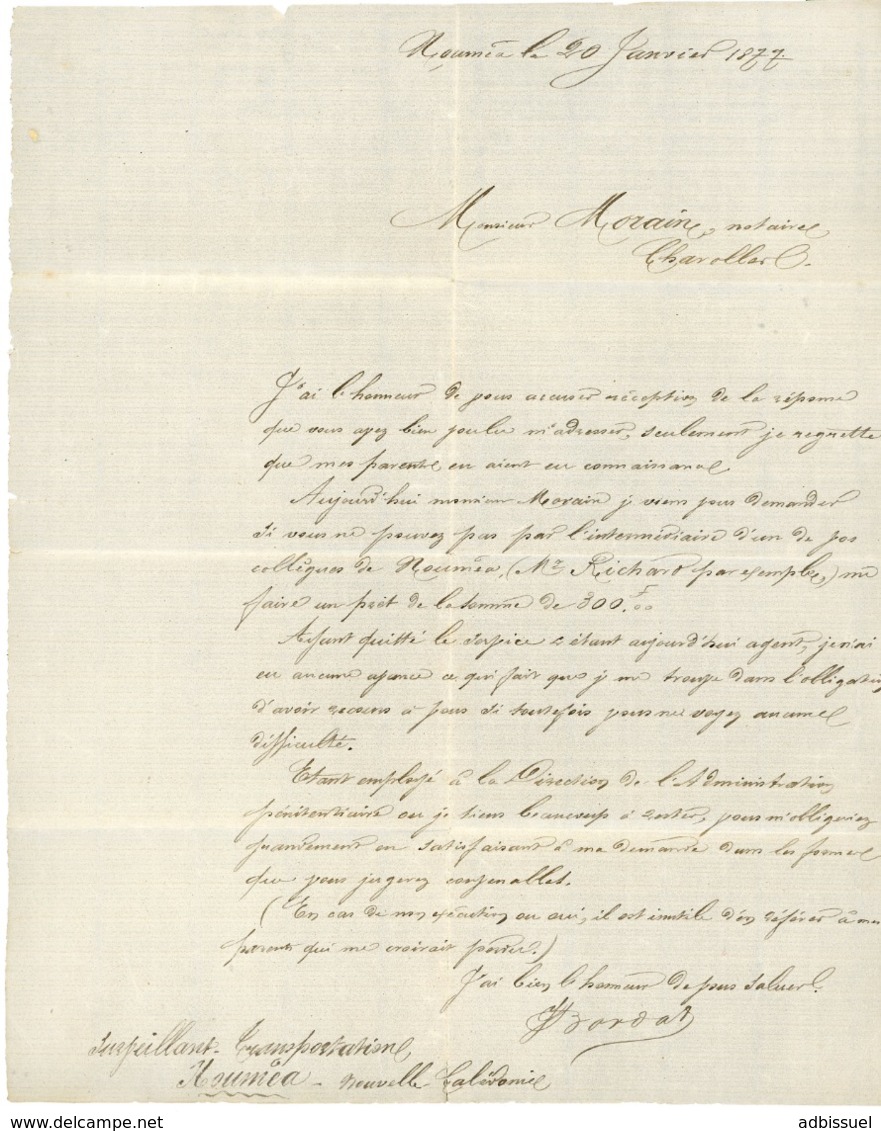 Nouméa le 20 Janvier 1877.
Monsieur Morain, notaire
Charolles.
J'ai l'honneur de vous accuser réception de la réponse
que vous avez bien voulu m'adresser, seulement je regrette
que mes parents en aient eu connaissance
Aujourd'hui monsieur Morain je viens vous demander
si vous ne pouvez pas par l'intermédiaire d'un de vos
collègues de Nouméa, (Mr Richard par exemple,) me
faire un prêt de la somme de 300.f00
Ayant quitté le service & étant aujourd'hui agent, je n'ai
eu aucune avance ce qui fait que je me trouve dans l'obligation
d'avoir recours à vous si toutefois vous ne voyez aucune
difficulté.
Etant employé à la Direction de l'Administration
pénitentiaire ou je tiens beaucoup à rester, vous m'obligeriez
grandement en satisfaisant à ma demande dans les formes
que vous jugerez convenables.
(En cas de non exécution ou oui, il est inutile d'en référer à mes
parents qui me croirait perdu.)
J'ai bien l'honneur de vous saluer.
Bordat
Surveillant - Transportation,
Nouméa - Nouvelle Calédonie
adbissuel